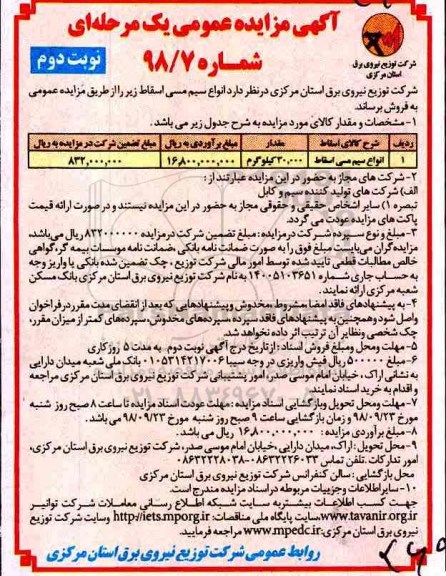 آگهی مزایده عمومی یک مرحله‌ای
شماره ۹۸/۷
نوبت دوم
شرکت توزیع نیروی برق
استان مرکزی
شرکت توزیع نیروی برق استان مرکزی درنظر دارد انواع سیم مسی اسقاط زیر را از طریق مزایده عمومی
به فروش برساند.
۱- مشخصات و مقدار کالای مورد مزایده به شرح جدول زیر می باشد.
ردیف شرح کالای اسقاط مقدار مبلغ برآوردی به ریال مبلغ تضمین شرکت در مزایده به ریال
۱ انواع سیم مسی اسقاط ۳۰,۰۰۰ کیلوگرم ۱۶,۸۰۰,۰۰۰,۰۰۰ ۸۳۲,۰۰۰,۰۰۰
۲- شرکت های مجاز به حضور در این مزایده عبارتند از:
الف) شرکت های تولید کننده سیم و کابل
تبصره ۱) سایر اشخاص حقیقی و حقوقی مجاز به حضور در این مزایده نیستند و در صورت ارائه قیمت
پاکت های مزایده عودت می گردد.
۳- مبلغ و نوع سپرده شرکت در مزایده: مبلغ تضمین شرکت در مزایده ۸۳۲۰۰۰۰۰۰ ریال می باشد،
مزایده گران می بایست مبلغ فوق را به صورت ضمانت نامه بانکی، ضمانت نامه موسسات بیمه گر، گواهی
خالص مطالبات قطعی تایید شده توسط امور مالی شرکت توزیع، چک تضمین شده بانکی یا واریز وجه
به حساب جاری شماره ۱۴۰۰۵۱۰۳۶۵۱ به نام شرکت توزیع نیروی برق استان مرکزی بانک مسکن
شعبه مرکزی ارائه نمایند.
۴- به پیشنهادهای فاقد امضا، مشروط، مخدوش و پیشنهادهایی که بعد از انقضای مدت مقرر در فراخوان
واصل شود و همچنین به پیشنهادهای فاقد سپرده، سپرده‌های مخدوش، سپرده‌های کمتر از میزان مقرر،
چک شخصی و نظایر آن ترتیب اثر داده نخواهد شد.
۵- مهلت و محل و مبلغ فروش اسناد: از تاریخ درج آگهی نوبت دوم به مدت ۵ روز کاری
۶- مبلغ ۵۰۰۰۰۰ ریال فیش واریزی در وجه سیبا ۰۱۰۵۳۱۴۲۱۷۰۰۶ بانک ملی شعبه میدان دارایی
به نشانی اراک، خیابان امام موسی صدر، امور پشتیبانی شرکت توزیع نیروی برق استان مرکزی مراجعه
و اقدام به خرید اسناد نمایند.
۷- مهلت و محل تحویل و بازگشایی اسناد مزایده: مهلت عودت اسناد مزایده تا ساعت ۸ صبح روز شنبه
مورخ ۹۸/۰۹/۲۳ و زمان بازگشایی ساعت ۹ صبح روز شنبه مورخ ۹۸/۰۹/۲۳ می باشد.
۸- مبلغ برآوردی مزایده: ۱۶,۸۰۰,۰۰۰,۰۰۰ ریال می باشد.
۹- محل تحویل: اراک، میدان دارایی، خیابان امام موسی صدر، شرکت توزیع نیروی برق استان مرکزی،
امور تدارکات. تلفن تماس ۰۸۶۳۲۲۲۶۰۳۳-۰۸۶۳۲۲۲۸۰۳۸
محل بازگشایی: سالن کنفرانس شرکت توزیع نیروی برق استان مرکزی
۱۰- سایر اطلاعات و جزییات مربوطه در اسناد مزایده مندرج است.
جهت کسب اطلاعات بیشتر به سایت شبکه اطلاع رسانی معاملات شرکت توانیر
www.tavanir.org.ir، سایت پایگاه ملی مناقصات: http://iets.mporg.ir وسایت شرکت توزیع
نیروی برق استان مرکزی: www.mpedc.ir مراجعه فرمایید.
روابط عمومی شرکت توزیع نیروی برق استان مرکزی